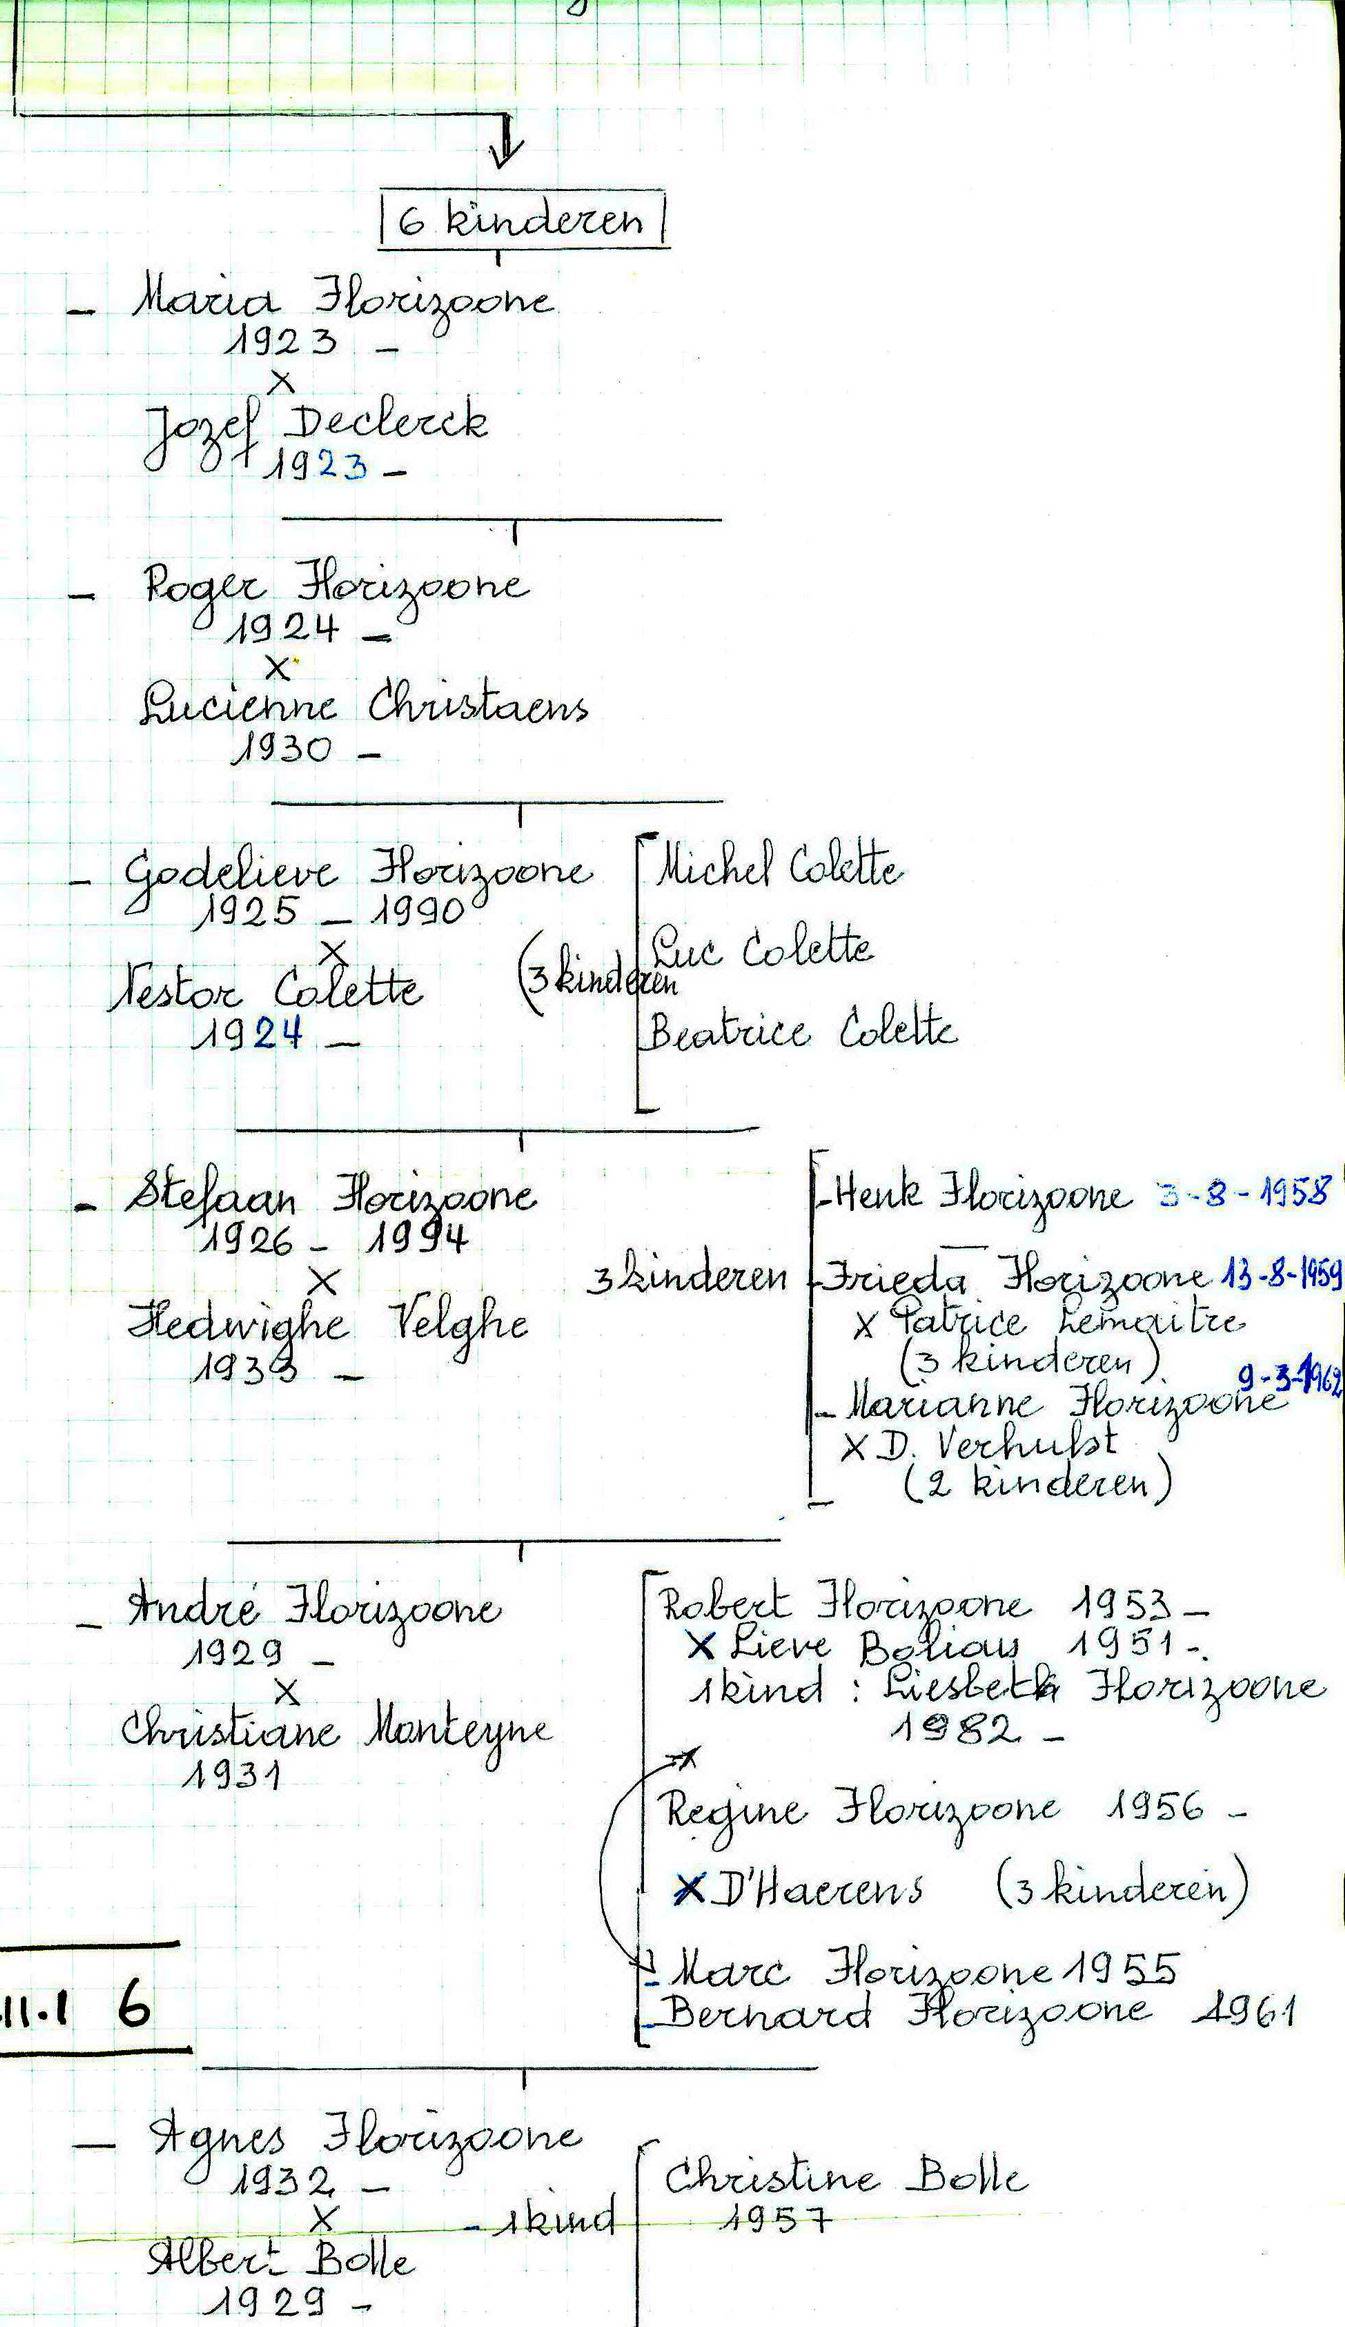 6 kinderen
- Maria Florizoone
1923 -
X
Jozef Declerck
1923 -
- Roger Florizoone
1924 -
X
Lucienne Christaens
1930 -
- Godelieve Florizoone
1925 - 1990
X
Nestor Colette
1924 -
(3 kinderen
Michel Colette
Luc Colette
Beatrice Colette
- Stefaan Florizoone
1926 - 1994
X
Hedwighe Velghe
1933 -
3 kinderen
- Henk Florizoone 3-8-1958
- Frieda Florizoone 13-8-1959
X Patrice Lemaitre
(3 kinderen)
9-3-1962
- Marianne Florizoone
X D. Verhulst
(2 kinderen)
- André Florizoone
1929 -
X
Christiane Monteyne
1931
Robert Florizoone 1953 -
X Lieve 1951 -.
1 kind : Liesbeth Florizoone
1982 -
Regine Florizoone 1956 -
X D'Haerens (3 kinderen)
- Marc Florizoone 1955
- Bernard Florizoone 1961
II.1 6
- Agnes Florizoone
1932 -
X
Albert Bolle
1929 -
- 1 kind
Christine Bolle
1957